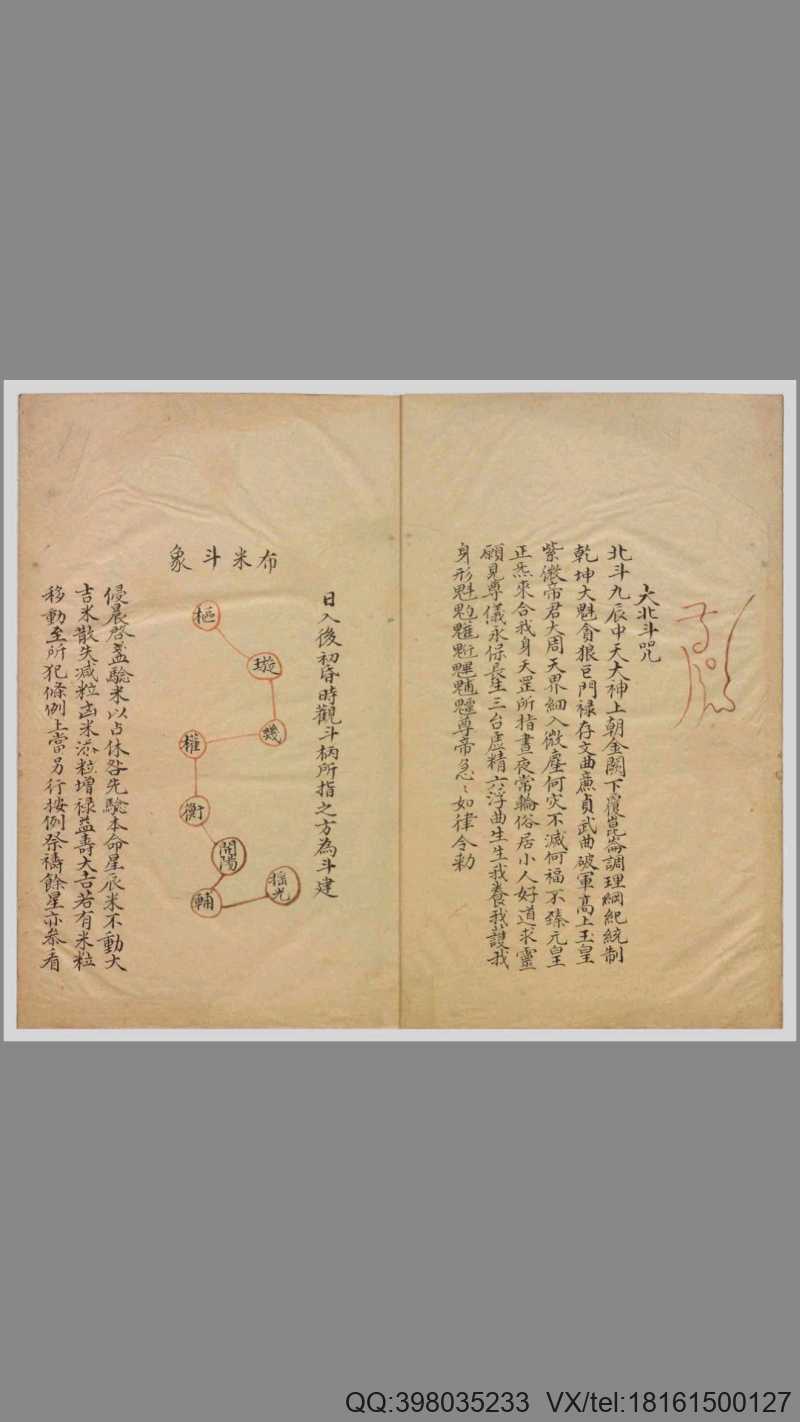 大北斗咒
北斗九辰中天大神上朝金闕下覆崑崙調理綱紀統制
乾坤大魁貪狼巨門禄存文曲廉貞武曲破軍髙上玉皇
紫微帝君大周天界細入微塵何灾不滅何福不臻元皇
正炁來合我身天罡所指晝夜常輪俗居小人好道求靈
願見尊儀永保長生三台虚精六淳曲生生我養我護我
身形魁尊帝急〻如律令勅
日入後初昏時觀斗柄所指之方為斗建
布米斗象
樞
璇
璣
權
衡
開陽
輔
摇光
侵晨啓盖驗米以占休咎先驗本命星辰米不動大
吉米散失减粒凶米添粒增禄益壽大吉若有米粒
移動至所犯條例上當另行按例祭禱餘星亦叅看
QQ:398035233 VX/tel:18161500127